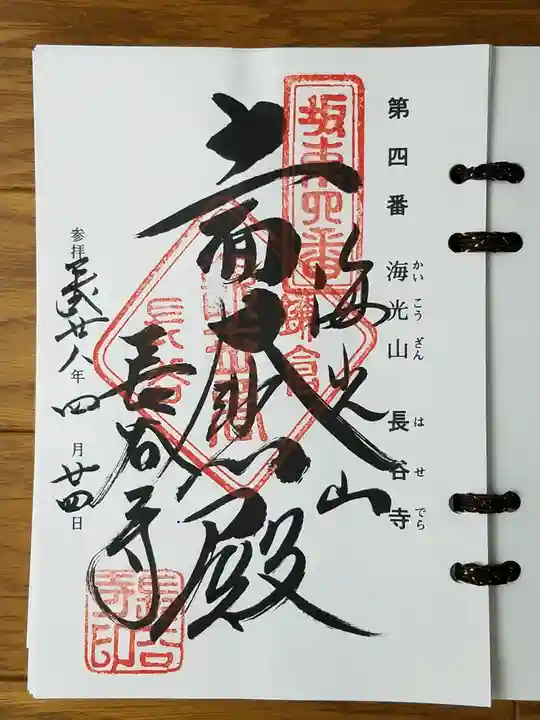 第四番 海光山 長谷寺
かいこうざん はせでら
坂東四番
海光山
十一面大悲殿
長谷寺
参拝 平成廿八年 四月 廿四日
長谷寺印